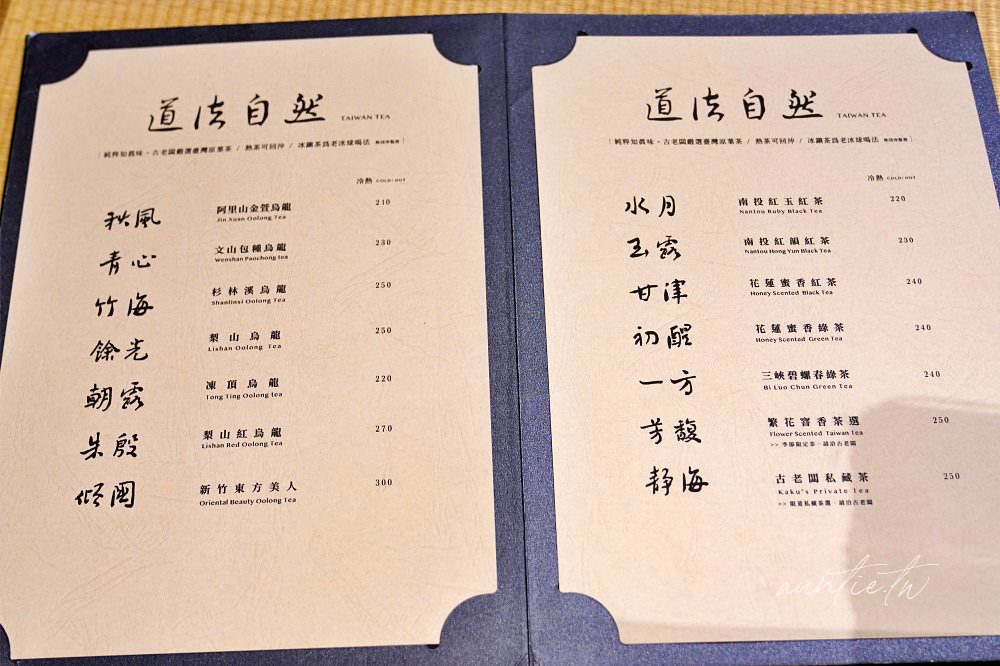 道法自然 TAIWAN TEA
純粹知真味。古老闆嚴選臺灣原葉茶 / 熱茶可回沖 / 冰鎮茶為老冰球喝法
冷熱 COLD/HOT
秋風 阿里山金萱烏龍 210
Jin Xuan Oolong Tea
青心 文山包種烏龍 230
Wenshan Paochong tea
竹海 杉林溪烏龍 250
Shanlinxi Oolong Tea
餘光 梨山烏龍 250
Lishan Oolong Tea
朝露 凍頂烏龍 220
Tong Ting Oolong tea
朱殷 梨山紅烏龍 270
Lishan Red Oolong Tea
傾國 新竹東方美人 300
Oriental Beauty Oolong Tea
道法自然 TAIWAN TEA
純粹知真味。古老闆嚴選臺灣原葉茶 / 熱茶可回沖 / 冰鎮茶為老冰球喝法
冷熱 COLD/HOT
水月 南投紅玉紅茶 220
Nantou Ruby Black Tea
玉露 南投紅韻紅茶 230
Nantou Hong Yun Black Tea
甘津 花蓮蜜香紅茶 240
Honey Scented Black Tea
初醒 花蓮蜜香綠茶 240
Honey Scented Green Tea
一方 三峽碧螺春綠茶 240
Bi Luo Chun Green Tea
芳馥 繁花窨香茶選 250
Flower Scented Taiwan Tea
>> 季節限定茶，請洽古老闆
靜海 古老闆私藏茶 250
Kaku's Private Tea
>> 限量私藏茶選，請洽古老闆
auntie.tw